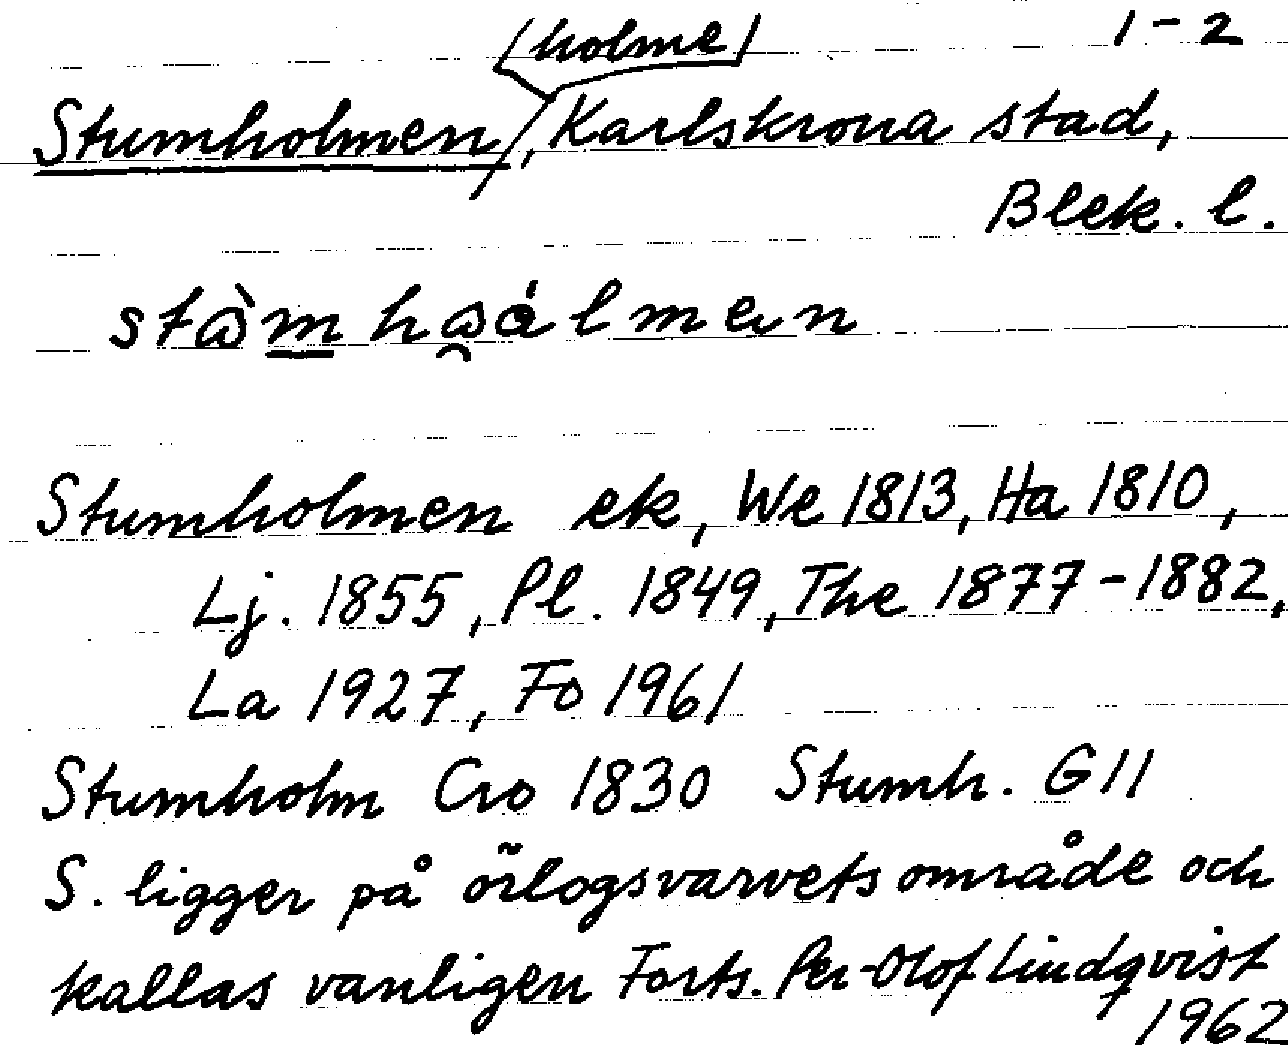 (holme) 1-2
Stumholmen, Karlskrona stad,
Blek. l.
Stumholmen ek, We 1813, Ha 1810,
Lj. 1855, Pl. 1849, The 1877-1882,
La 1927, Fo 1961
Stumholm Cro 1830 Stumh. G11
S. ligger på örlogsvarvets område och
kallas vanligen Forts. Per-Olof Lindqvist
1962